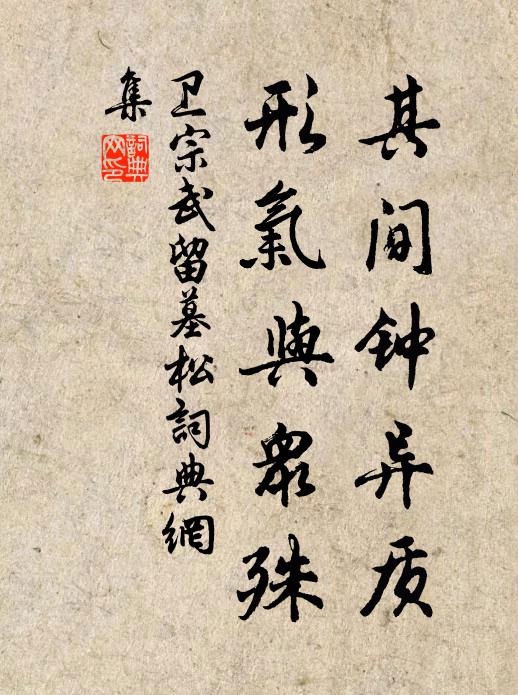 其间钟异质
形氣與眾殊
卫宗武留墓松詞典網
集
詞典
网印